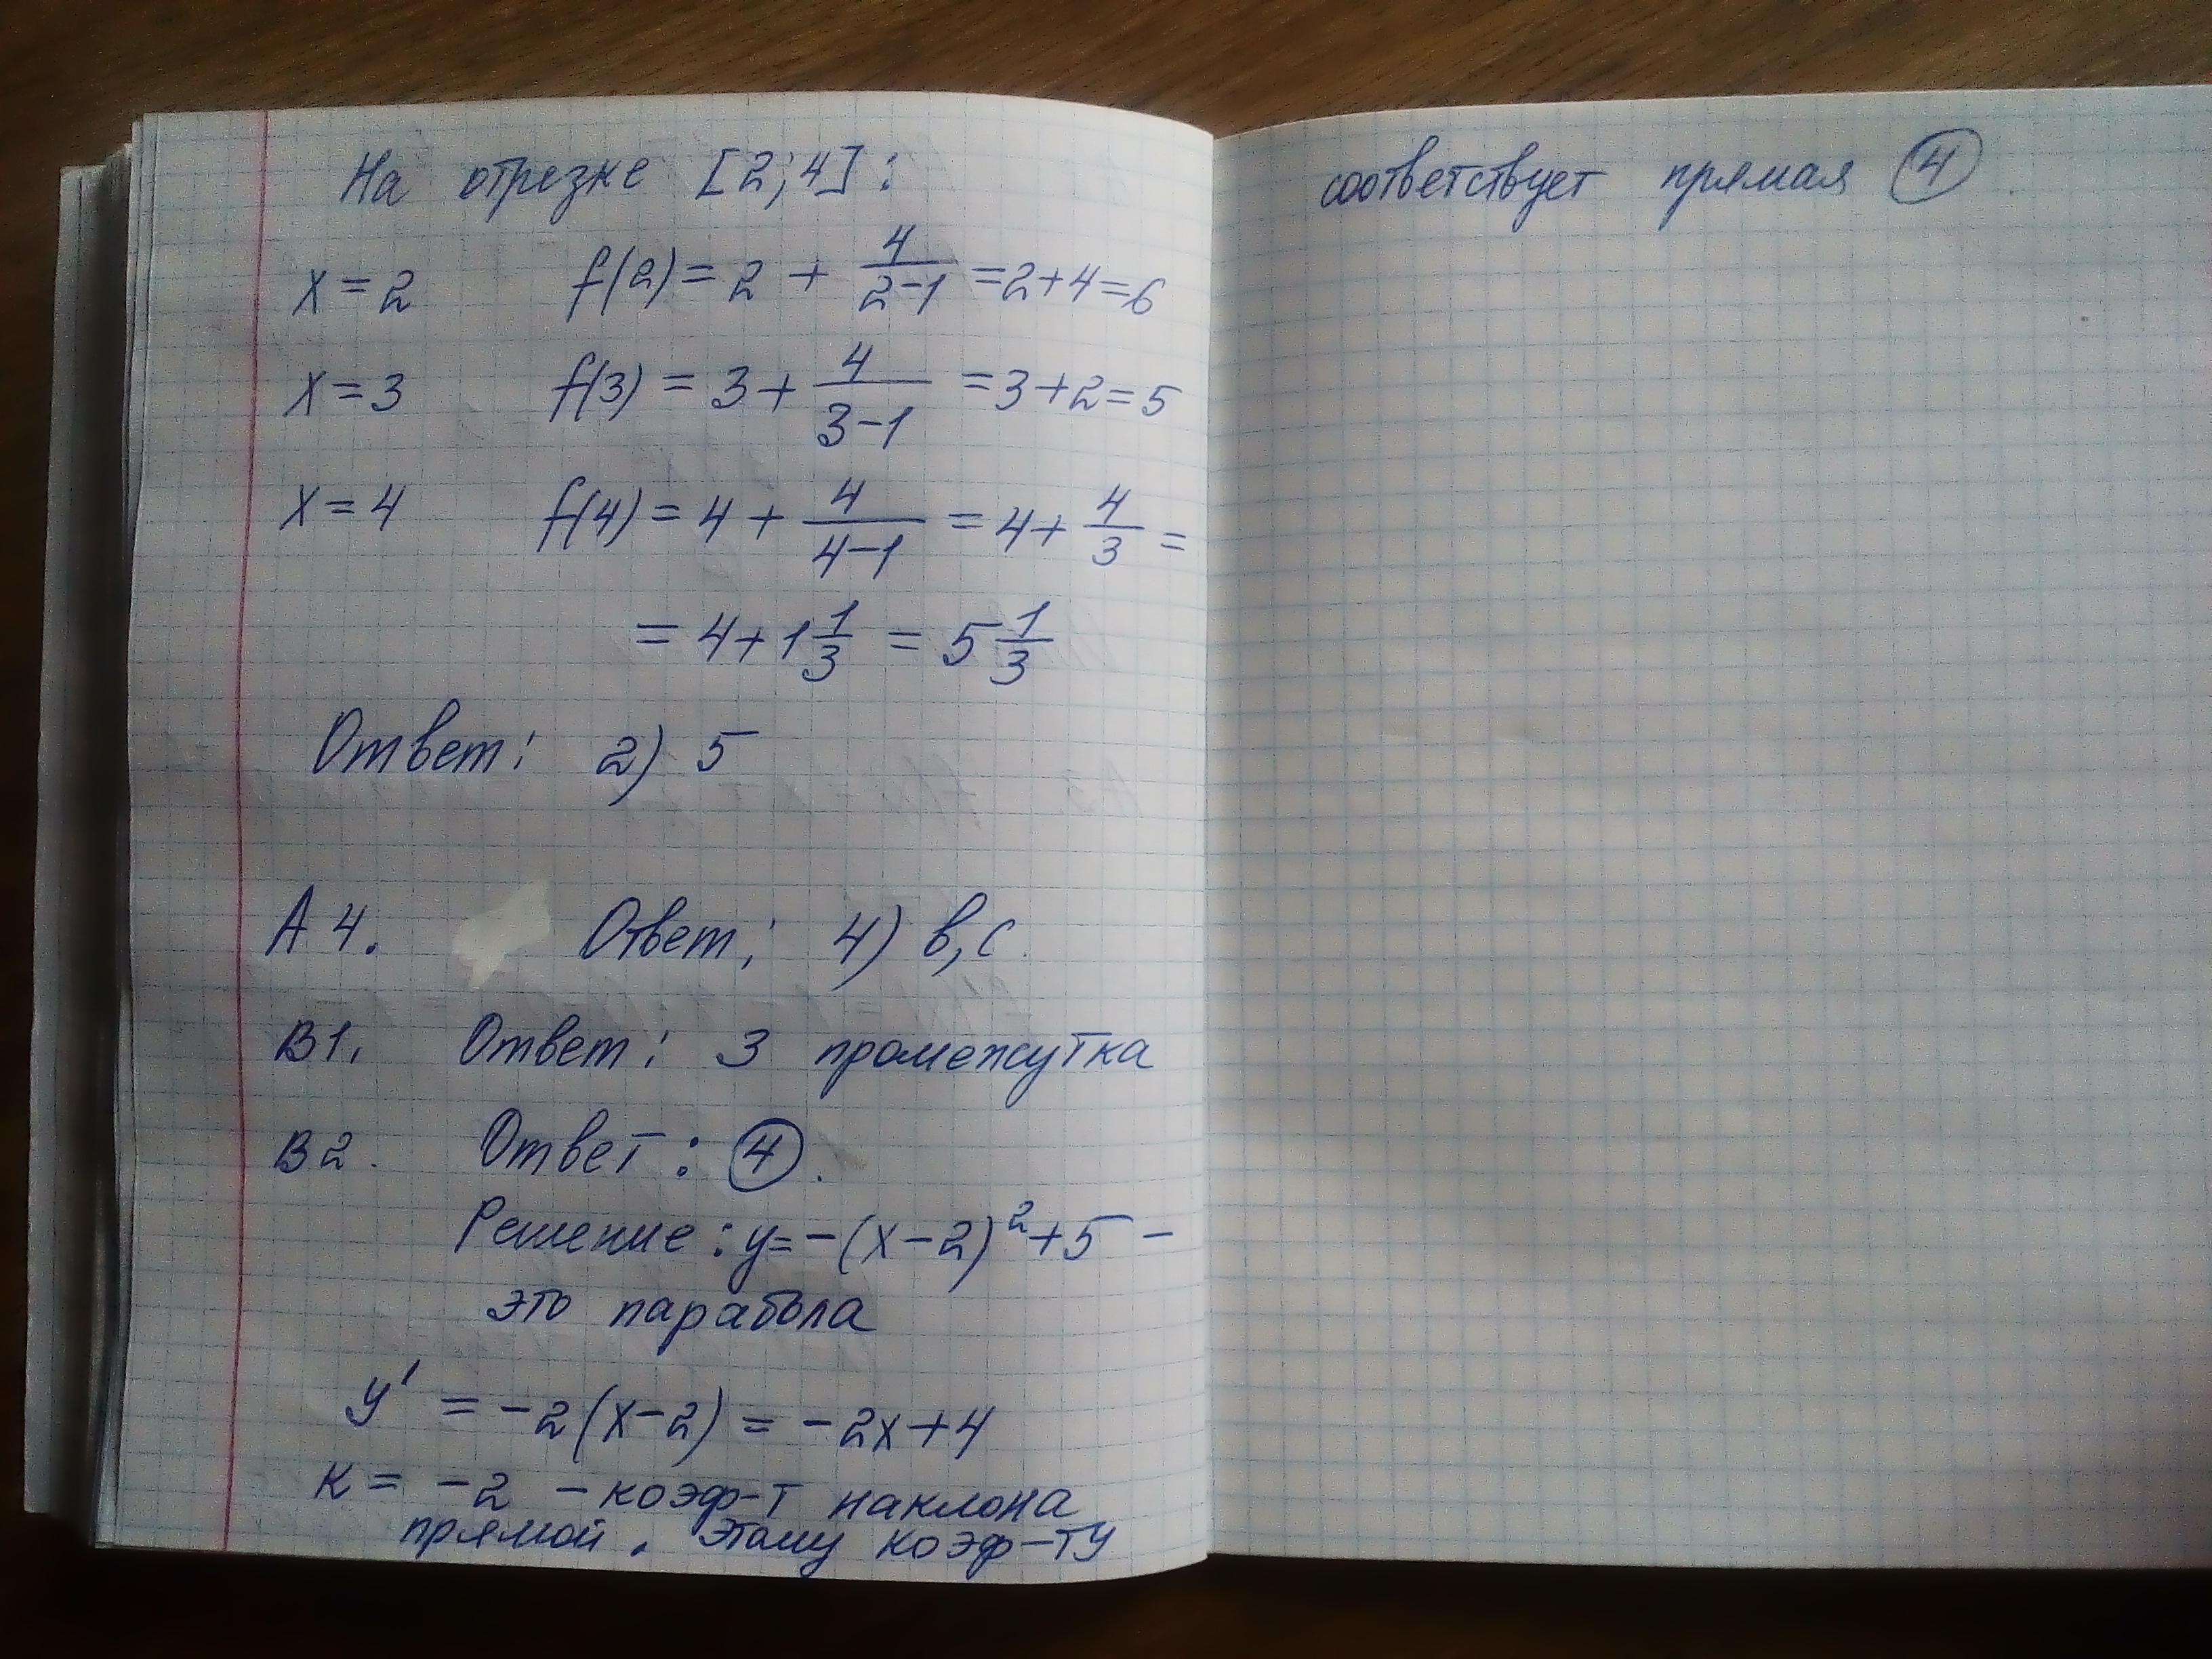 На отрезке [2; 4]:
x = 2 f(2) = 2 + 4/(2-1) = 2+4=6
x = 3 f(3) = 3 + 4/(3-1) = 3+2=5
x = 4 f(4) = 4 + 4/(4-1) = 4 + 4/3 =
= 4 + 1 1/3 = 5 1/3
Ответ: 2) 5
A 4. Ответ: 4) b, c.
B1. Ответ: 3 промежутка
B2. Ответ: ④.
Решение: y = -(x-2)²+5 -
это парабола
y' = -2(x-2) = -2x+4
k = -2 - коэф-т наклона
прямой. Этому коэф-ту
соответствует прямая ④.